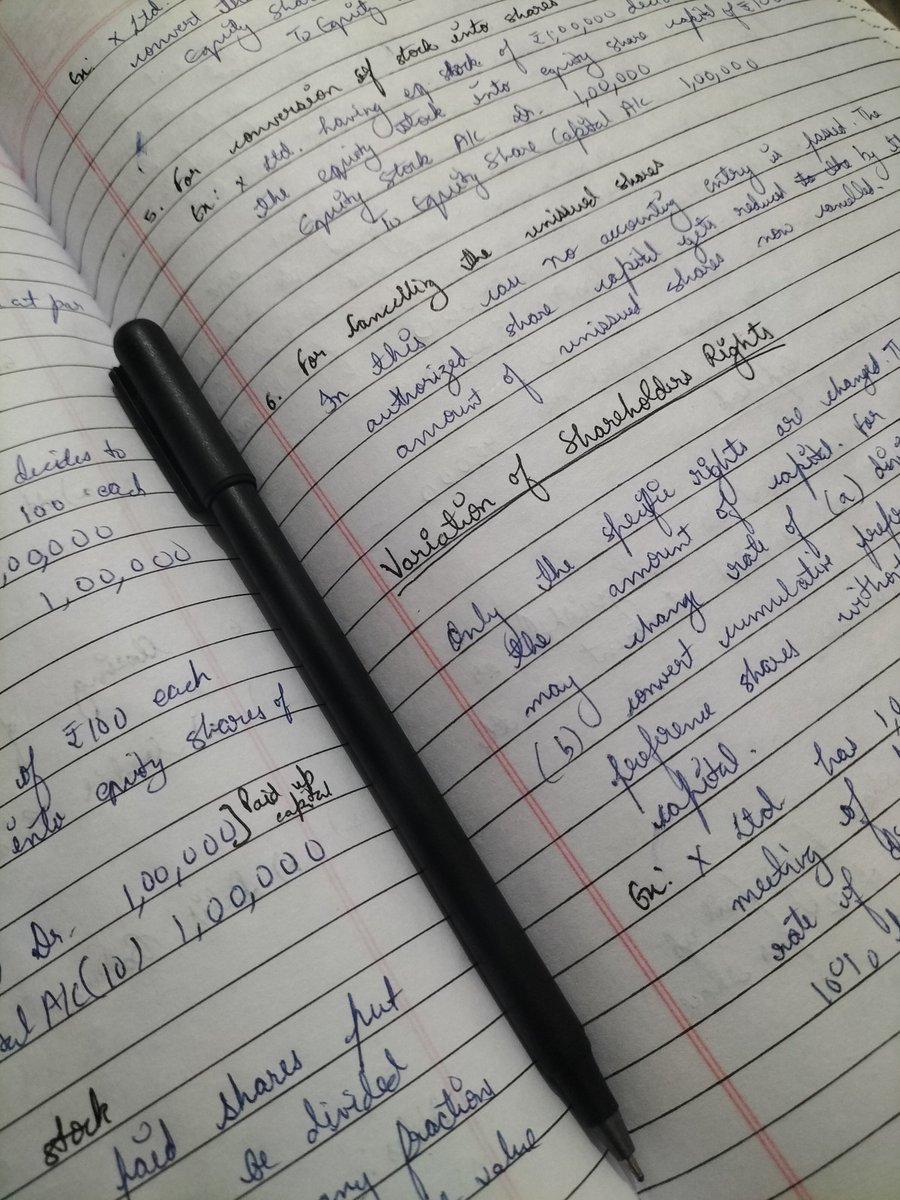 at par
decides to
100 each
,00,000
1,00,000
of ₹100 each
into equity shares of
Dr. 1,00,000] Paid up
capital
A/C (10) 1,00,000
stock
paid shares put
be divided
any fraction
value
Ex: X Ltd.
convert the
Equity Sha
To Equity
5. For conversion of stock into shares
Ex: X Ltd. having eq stock of ₹1,00,000
the equity stock into equity share capital of ₹100
Equity Stock A/C Dr. 1,00,000
To Equity Share Capital A/C 1,00,000
6. For Cancelling the unissued shares
In this case no accounting entry is passed. The
authorized share capital gets reduced by the
amount of unissued shares now cancelled.
Variation of Shareholders Rights
Only the specific rights are changed. T
the amount of capital. For
may change rate of (a) divi
(b) convert cumulative prefe
preference shares without
capital.
Ex: X Ltd has 1,
meeting of
rate of
10%